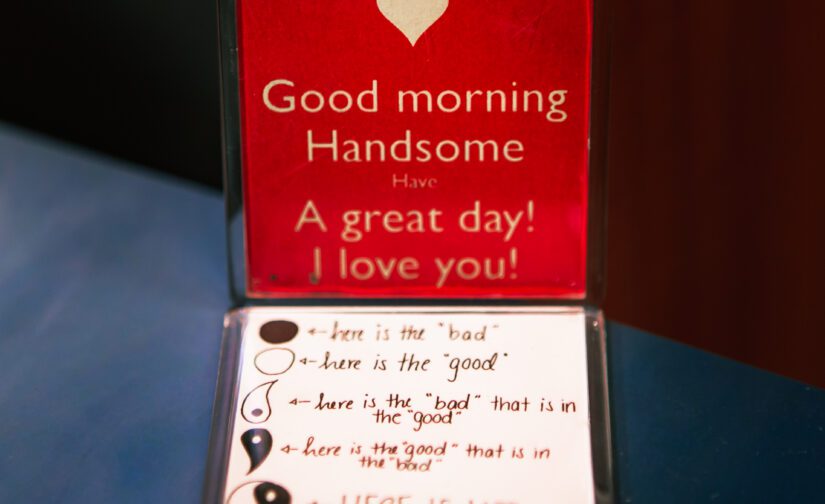 Good morning
Handsome
Have
A great day!
I love you!
←here is the "bad"
←here is the "good"
←here is the "bad" that is in
the "good"
←here is the "good" that is in
the "bad"
HERE IS